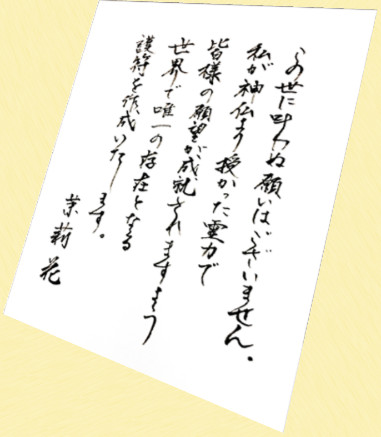 この世に叶わぬ願いはございません。
私が神仏より授かった霊力で
皆様の願望が成就されますよう
世界で唯一の存在となる
護符を作成いたします。
茉莉花